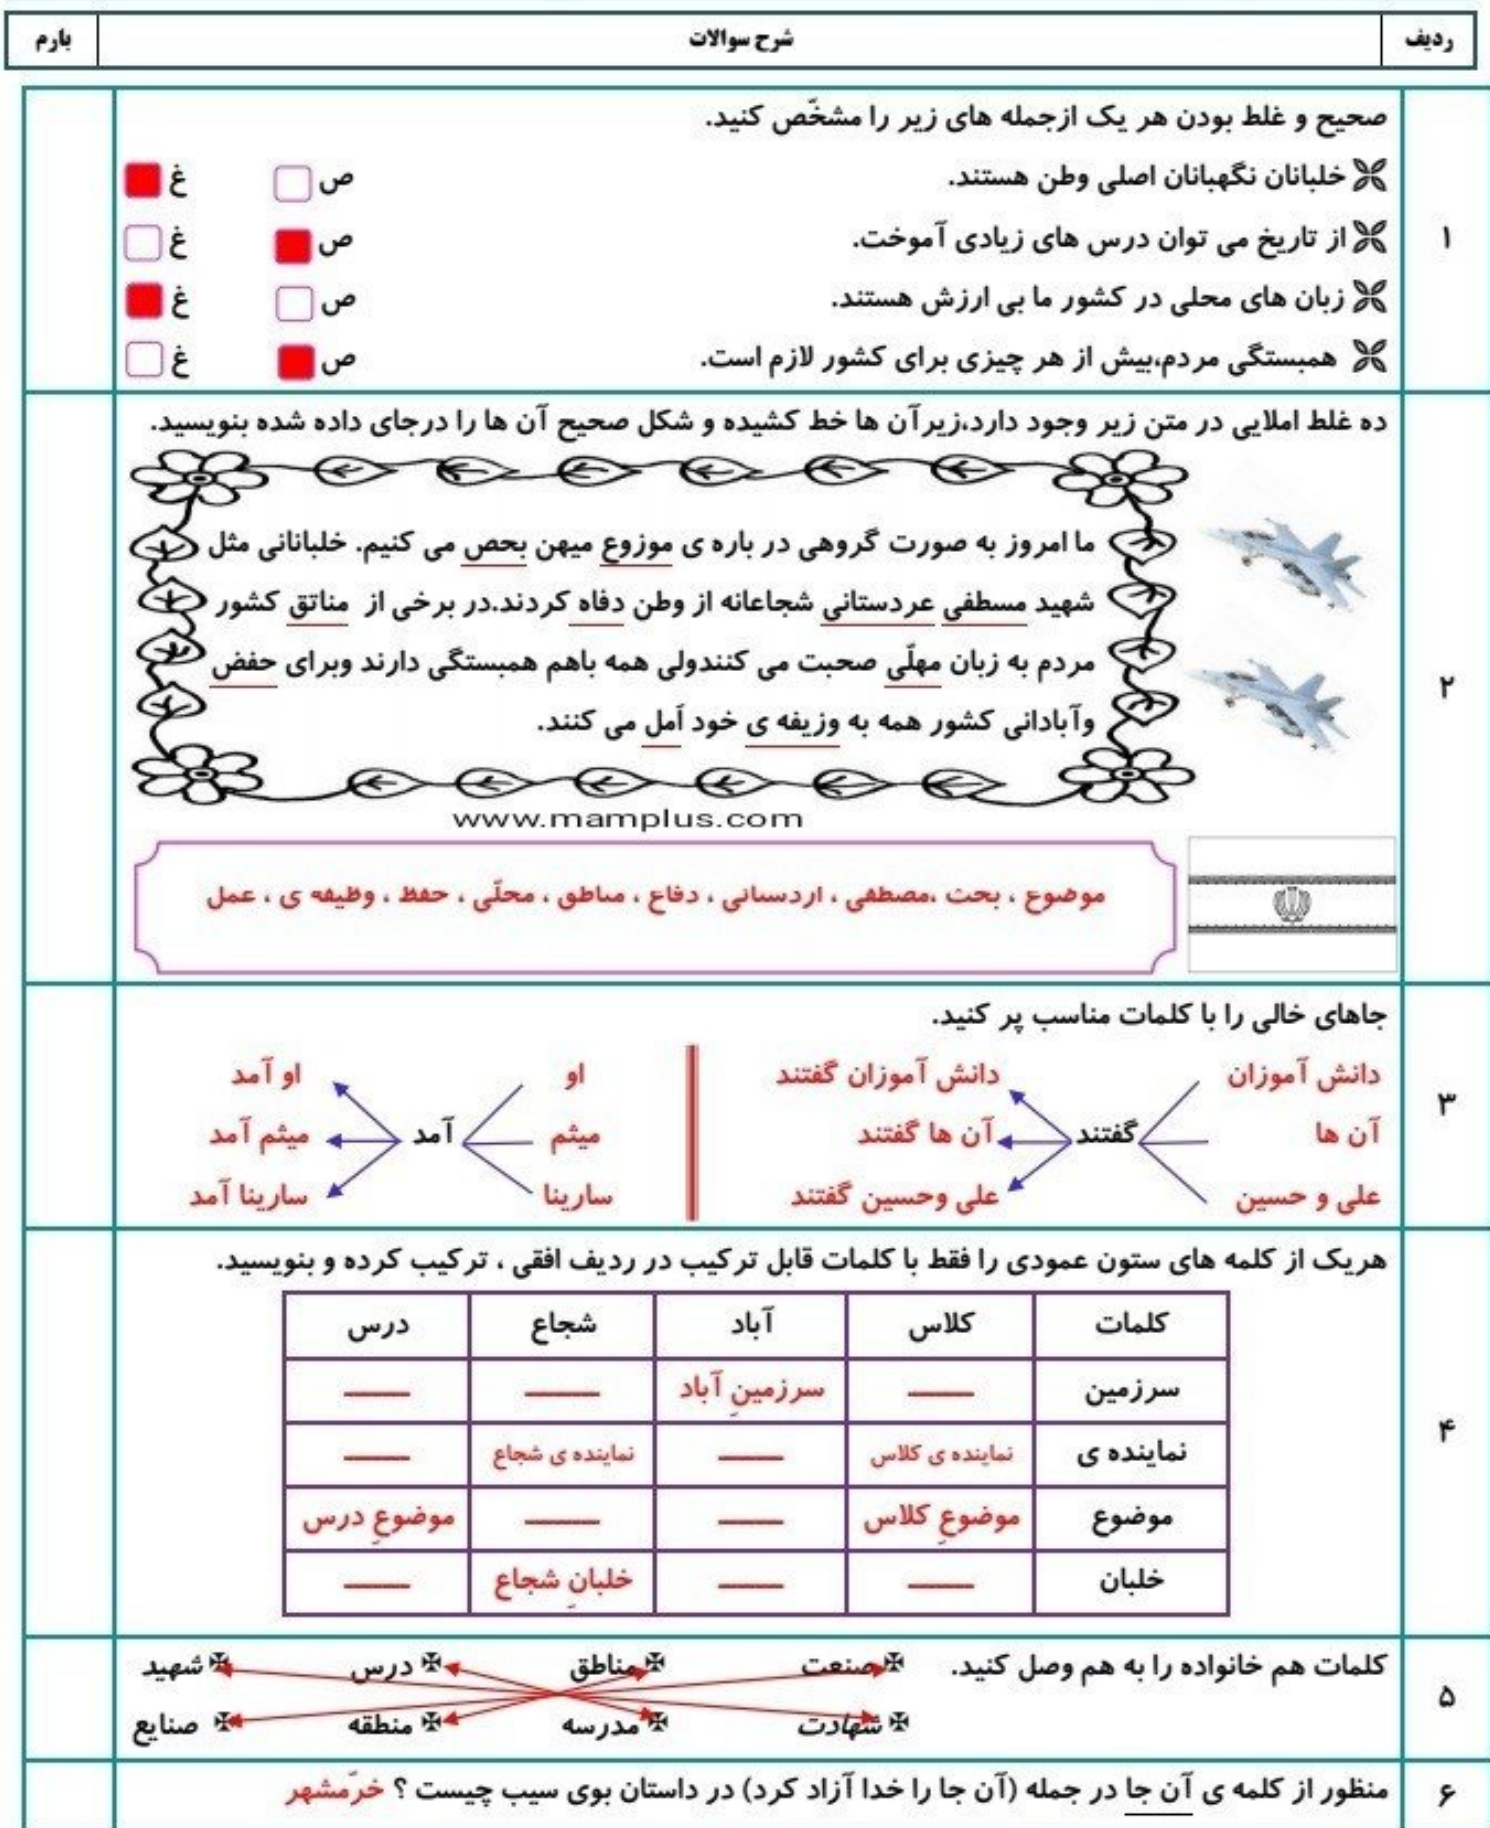 ردیف شرح سوالات بارم
۱
صحیح و غلط بودن هر یک ازجمله های زیر را مشخّص کنید.
خلبانان نگهبانان اصلی وطن هستند. ص غ
از تاریخ می توان درس های زیادی آموخت. ص غ
زبان های محلی در کشور ما بی ارزش هستند. ص غ
همبستگی مردم،بیش از هر چیزی برای کشور لازم است. ص غ
۲
ده غلط املایی در متن زیر وجود دارد،زیرآن ها خط کشیده و شکل صحیح آن ها را درجای داده شده بنویسید.
ما امروز به صورت گروهی در باره ی موزوع میهن بحص می کنیم. خلبانانی مثل
شهید مسطفی عردستانی شجاعانه از وطن دفاه کردند.در برخی از مناتق کشور
مردم به زبان مهلّی صحبت می کنندولی همه باهم همبستگی دارند وبرای حفض
وآبادانی کشور همه به وزیفه ی خود اَمل می کنند.
www.mamplus.com
موضوع ، بحث ،مصطفی ، اردستانی ، دفاع ، مناطق ، محلّی ، حفظ ، وظیفه ی ، عمل
۳
جاهای خالی را با کلمات مناسب پر کنید.
دانش آموزان دانش آموزان گفتند او او آمد
آن ها گفتند آن ها گفتند میثم آمد میثم آمد
علی و حسین علی وحسین گفتند سارینا سارینا آمد
۴
هریک از کلمه های ستون عمودی را فقط با کلمات قابل ترکیب در ردیف افقی ، ترکیب کرده و بنویسید.
کلمات کلاس آباد شجاع درس
سرزمین ــــــ سرزمینِ آباد ــــــ ــــــ
نماینده ی نماینده ی کلاس ــــــ نماینده ی شجاع ــــــ
موضوع موضوعِ کلاس ــــــ ــــــ موضوعِ درس
خلبان ــــــ ــــــ خلبانِ شجاع ــــــ
۵
کلمات هم خانواده را به هم وصل کنید. صنعت مناطق درس شهید
شهادت مدرسه منطقه صنایع
۶
منظور از کلمه ی آن جا در جمله (آن جا را خدا آزاد کرد) در داستان بوی سیب چیست ؟ خرّمشهر